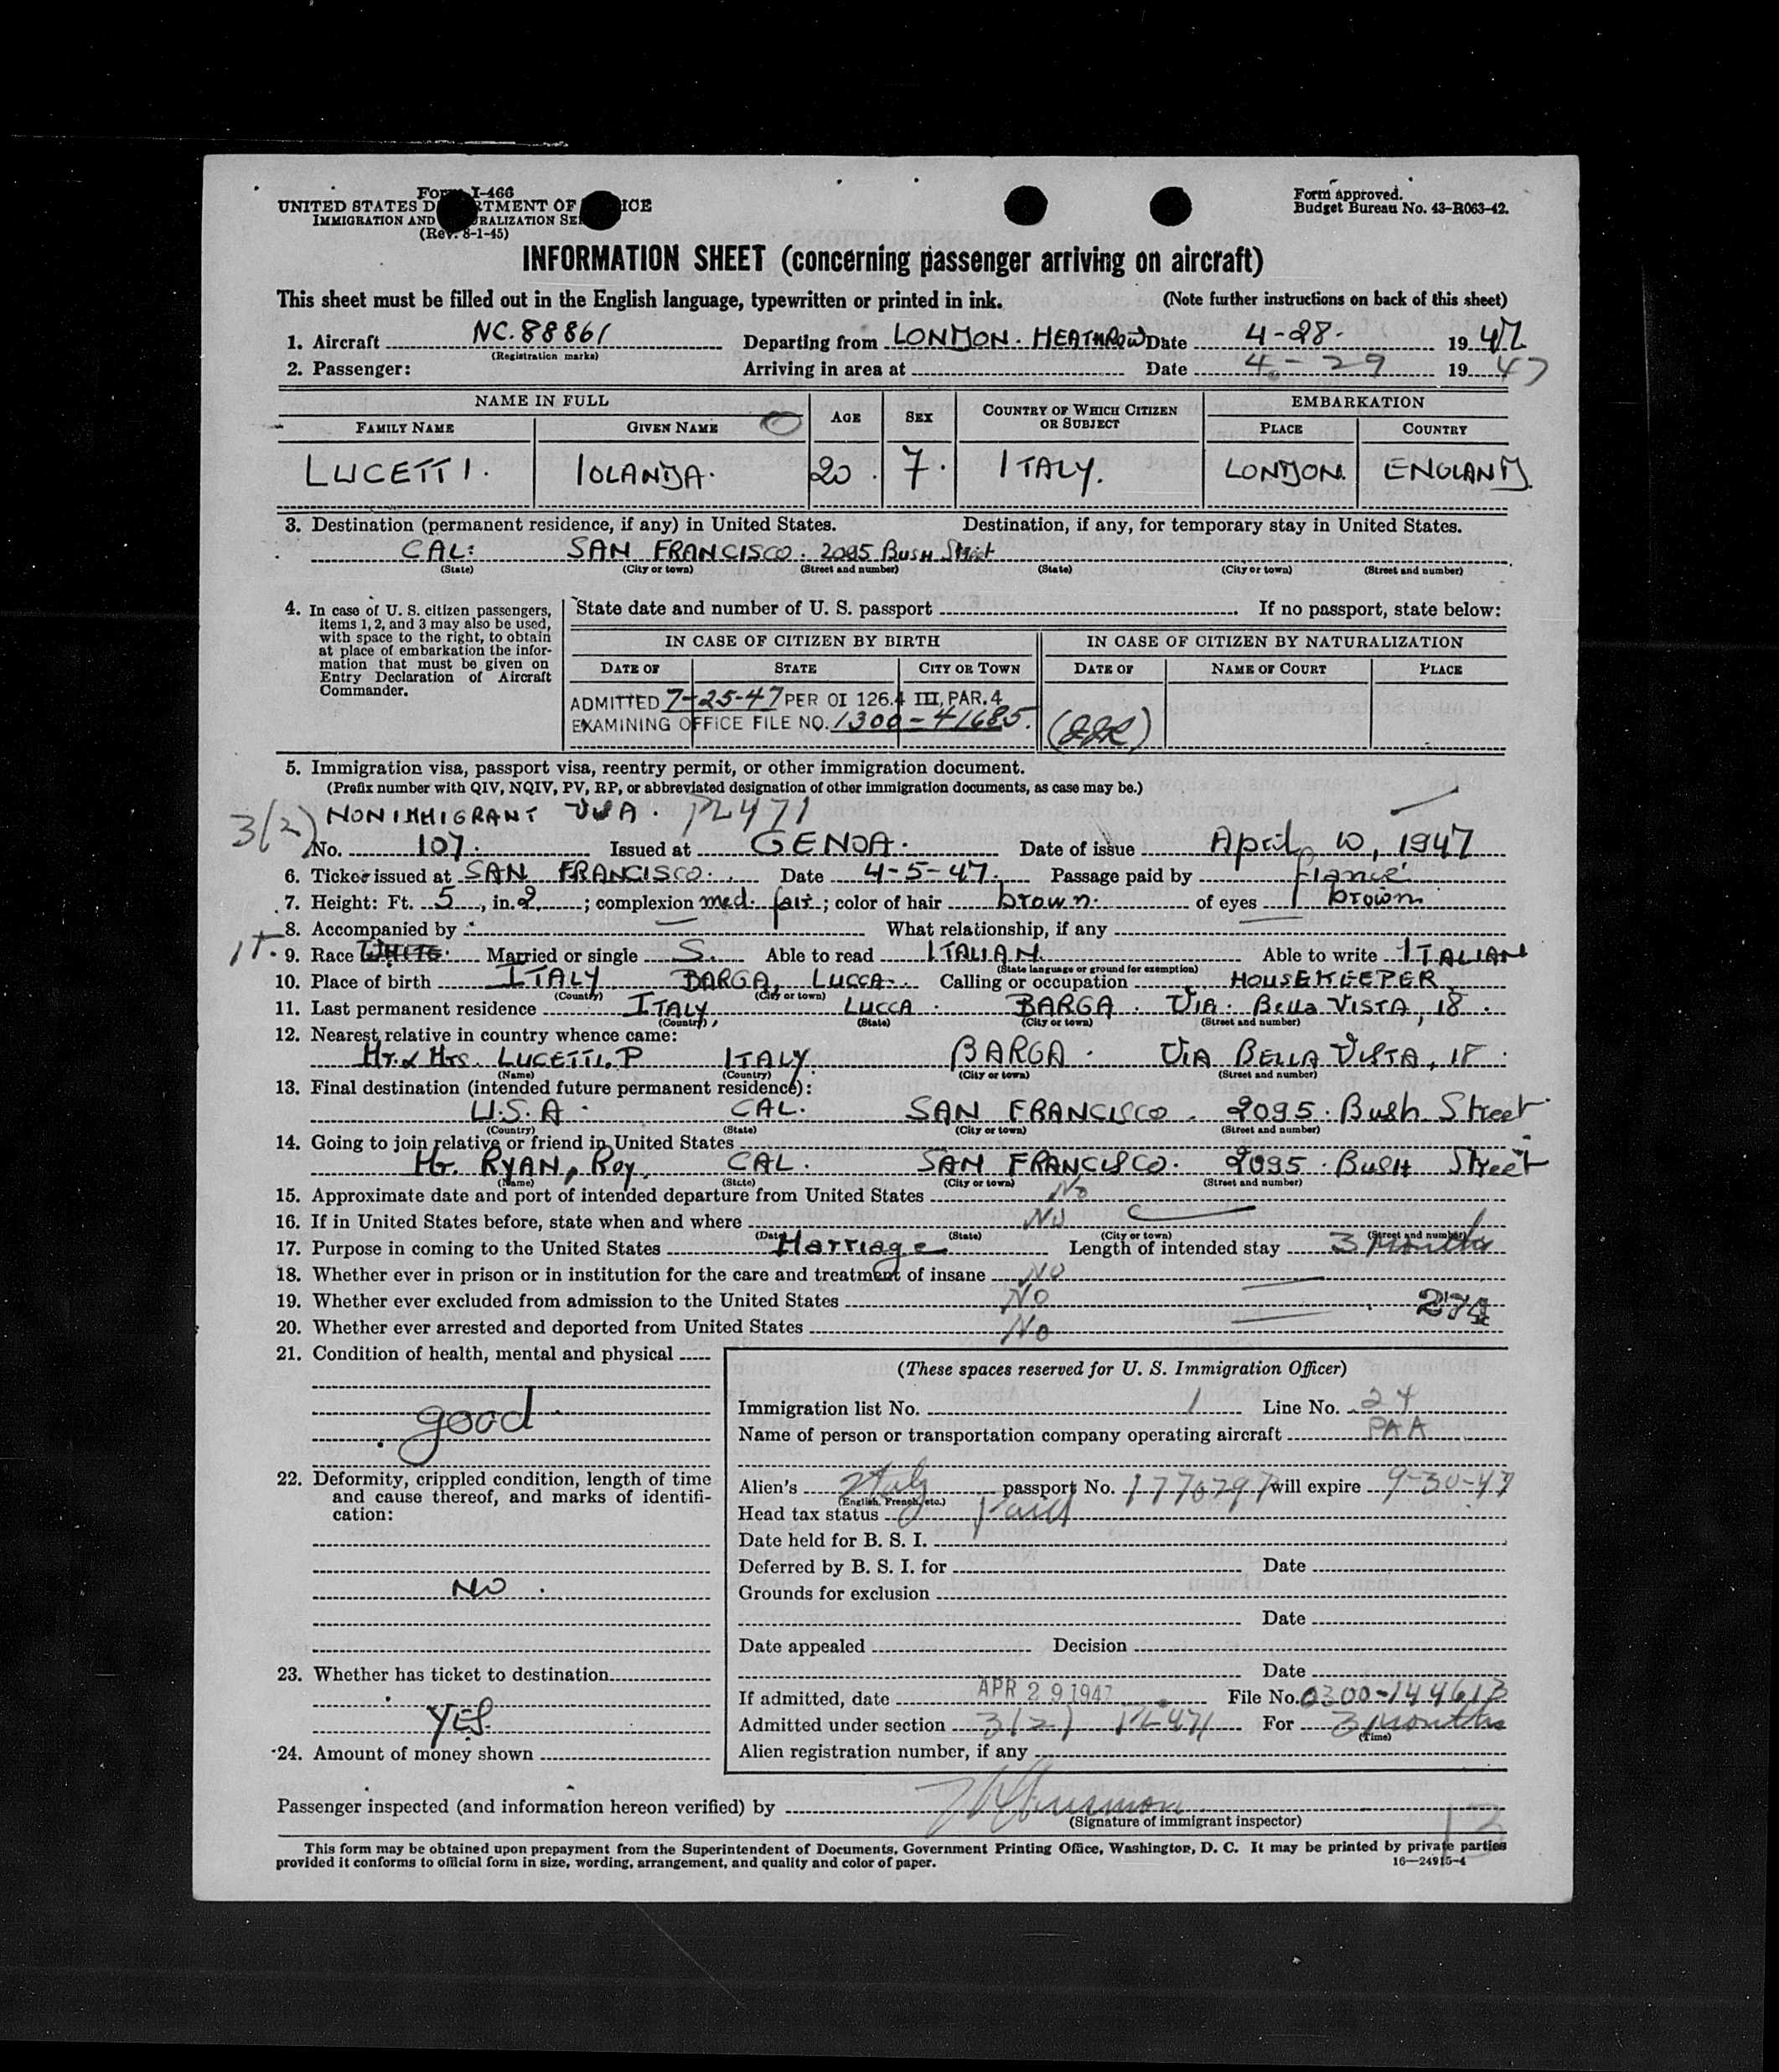 Form I-466
UNITED STATES DEPARTMENT OF JUSTICE
IMMIGRATION AND NATURALIZATION SERVICE
(Rev. 8-1-45)
Form approved.
Budget Bureau No. 43-R063-42.
INFORMATION SHEET (concerning passenger arriving on aircraft)
This sheet must be filled out in the English language, typewritten or printed in ink. (Note further instructions on back of this sheet)
1. Aircraft NC.88861 Departing from LONDON. HEATHROW Date 4-28- 1947
(Registration marks)
2. Passenger: Arriving in area at Date 4-29 1947
NAME IN FULL AGE SEX COUNTRY OF WHICH CITIZEN OR SUBJECT EMBARKATION
FAMILY NAME GIVEN NAME PLACE COUNTRY
LUCETTI. IOLANDA. 20. 7. ITALY. LONDON. ENGLAND
3. Destination (permanent residence, if any) in United States. Destination, if any, for temporary stay in United States.
CAL: SAN FRANCISCO. 2095 BUSH Street
(State) (City or town) (Street and number) (State) (City or town) (Street and number)
4. In case of U. S. citizen passengers, items 1, 2, and 3 may also be used, with space to the right, to obtain at place of embarkation the information that must be given on Entry Declaration of Aircraft Commander.
State date and number of U. S. passport If no passport, state below:
IN CASE OF CITIZEN BY BIRTH IN CASE OF CITIZEN BY NATURALIZATION
DATE OF STATE CITY OR TOWN DATE OF NAME OF COURT PLACE
ADMITTED 7-25-47 PER OI 126.4 III, PAR. 4
EXAMINING OFFICE FILE NO. 1300-41685.
5. Immigration visa, passport visa, reentry permit, or other immigration document.
(Prefix number with QIV, NQIV, PV, RP, or abbreviated designation of other immigration documents, as case may be.)
3(2) NONIMMIGRANT VISA. PL471
No. 107. Issued at GENOA. Date of issue April 10, 1947
6. Ticket issued at SAN FRANCISCO. Date 4-5-47. Passage paid by fiancé
7. Height: Ft. 5, in. 2; complexion med. fair; color of hair brown. of eyes brown
8. Accompanied by What relationship, if any
It. 9. Race WHITE. Married or single S. Able to read ITALIAN. Able to write ITALIAN
(State language or ground for exemption)
10. Place of birth ITALY BARGA, LUCCA. Calling or occupation HOUSEKEEPER
(Country) (City or town)
11. Last permanent residence ITALY, LUCCA. BARGA. VIA. Bella VISTA, 18.
(Country) (State) (City or town) (Street and number)
12. Nearest relative in country whence came:
Mr. & Mrs. LUCETTI. P ITALY. BARGA. VIA BELLA VISTA, 18.
(Name) (Country) (City or town) (Street and number)
13. Final destination (intended future permanent residence):
U.S.A. CAL. SAN FRANCISCO. 2095. Bush Street
(Country) (State) (City or town) (Street and number)
14. Going to join relative or friend in United States
Mr. RYAN, Roy. CAL. SAN FRANCISCO. 2095. BUSH Street
(Name) (State) (City or town) (Street and number)
15. Approximate date and port of intended departure from United States No
16. If in United States before, state when and where No
(Date) (State) (City or town) (Street and number)
17. Purpose in coming to the United States Marriage Length of intended stay 3 Months
18. Whether ever in prison or in institution for the care and treatment of insane NO
19. Whether ever excluded from admission to the United States No
20. Whether ever arrested and deported from United States No
21. Condition of health, mental and physical
good.
22. Deformity, crippled condition, length of time and cause thereof, and marks of identification:
NO.
23. Whether has ticket to destination
YES.
24. Amount of money shown
(These spaces reserved for U. S. Immigration Officer)
Immigration list No. 1 Line No. 24
Name of person or transportation company operating aircraft PAA
Alien's Italy passport No. 1770797 will expire 9-30-47
(English, French, etc.)
Head tax status Paid
Date held for B. S. I.
Deferred by B. S. I. for Date
Grounds for exclusion
Date
Date appealed Decision
Date
If admitted, date APR 29 1947 File No. 0300-144613
Admitted under section 3(2) PL 471 For 3 Months
(Time)
Alien registration number, if any
Passenger inspected (and information hereon verified) by
(Signature of immigrant inspector)
13
This form may be obtained upon prepayment from the Superintendent of Documents, Government Printing Office, Washington, D. C. It may be printed by private parties
provided it conforms to official form in size, wording, arrangement, and quality and color of paper. 16—24915-4